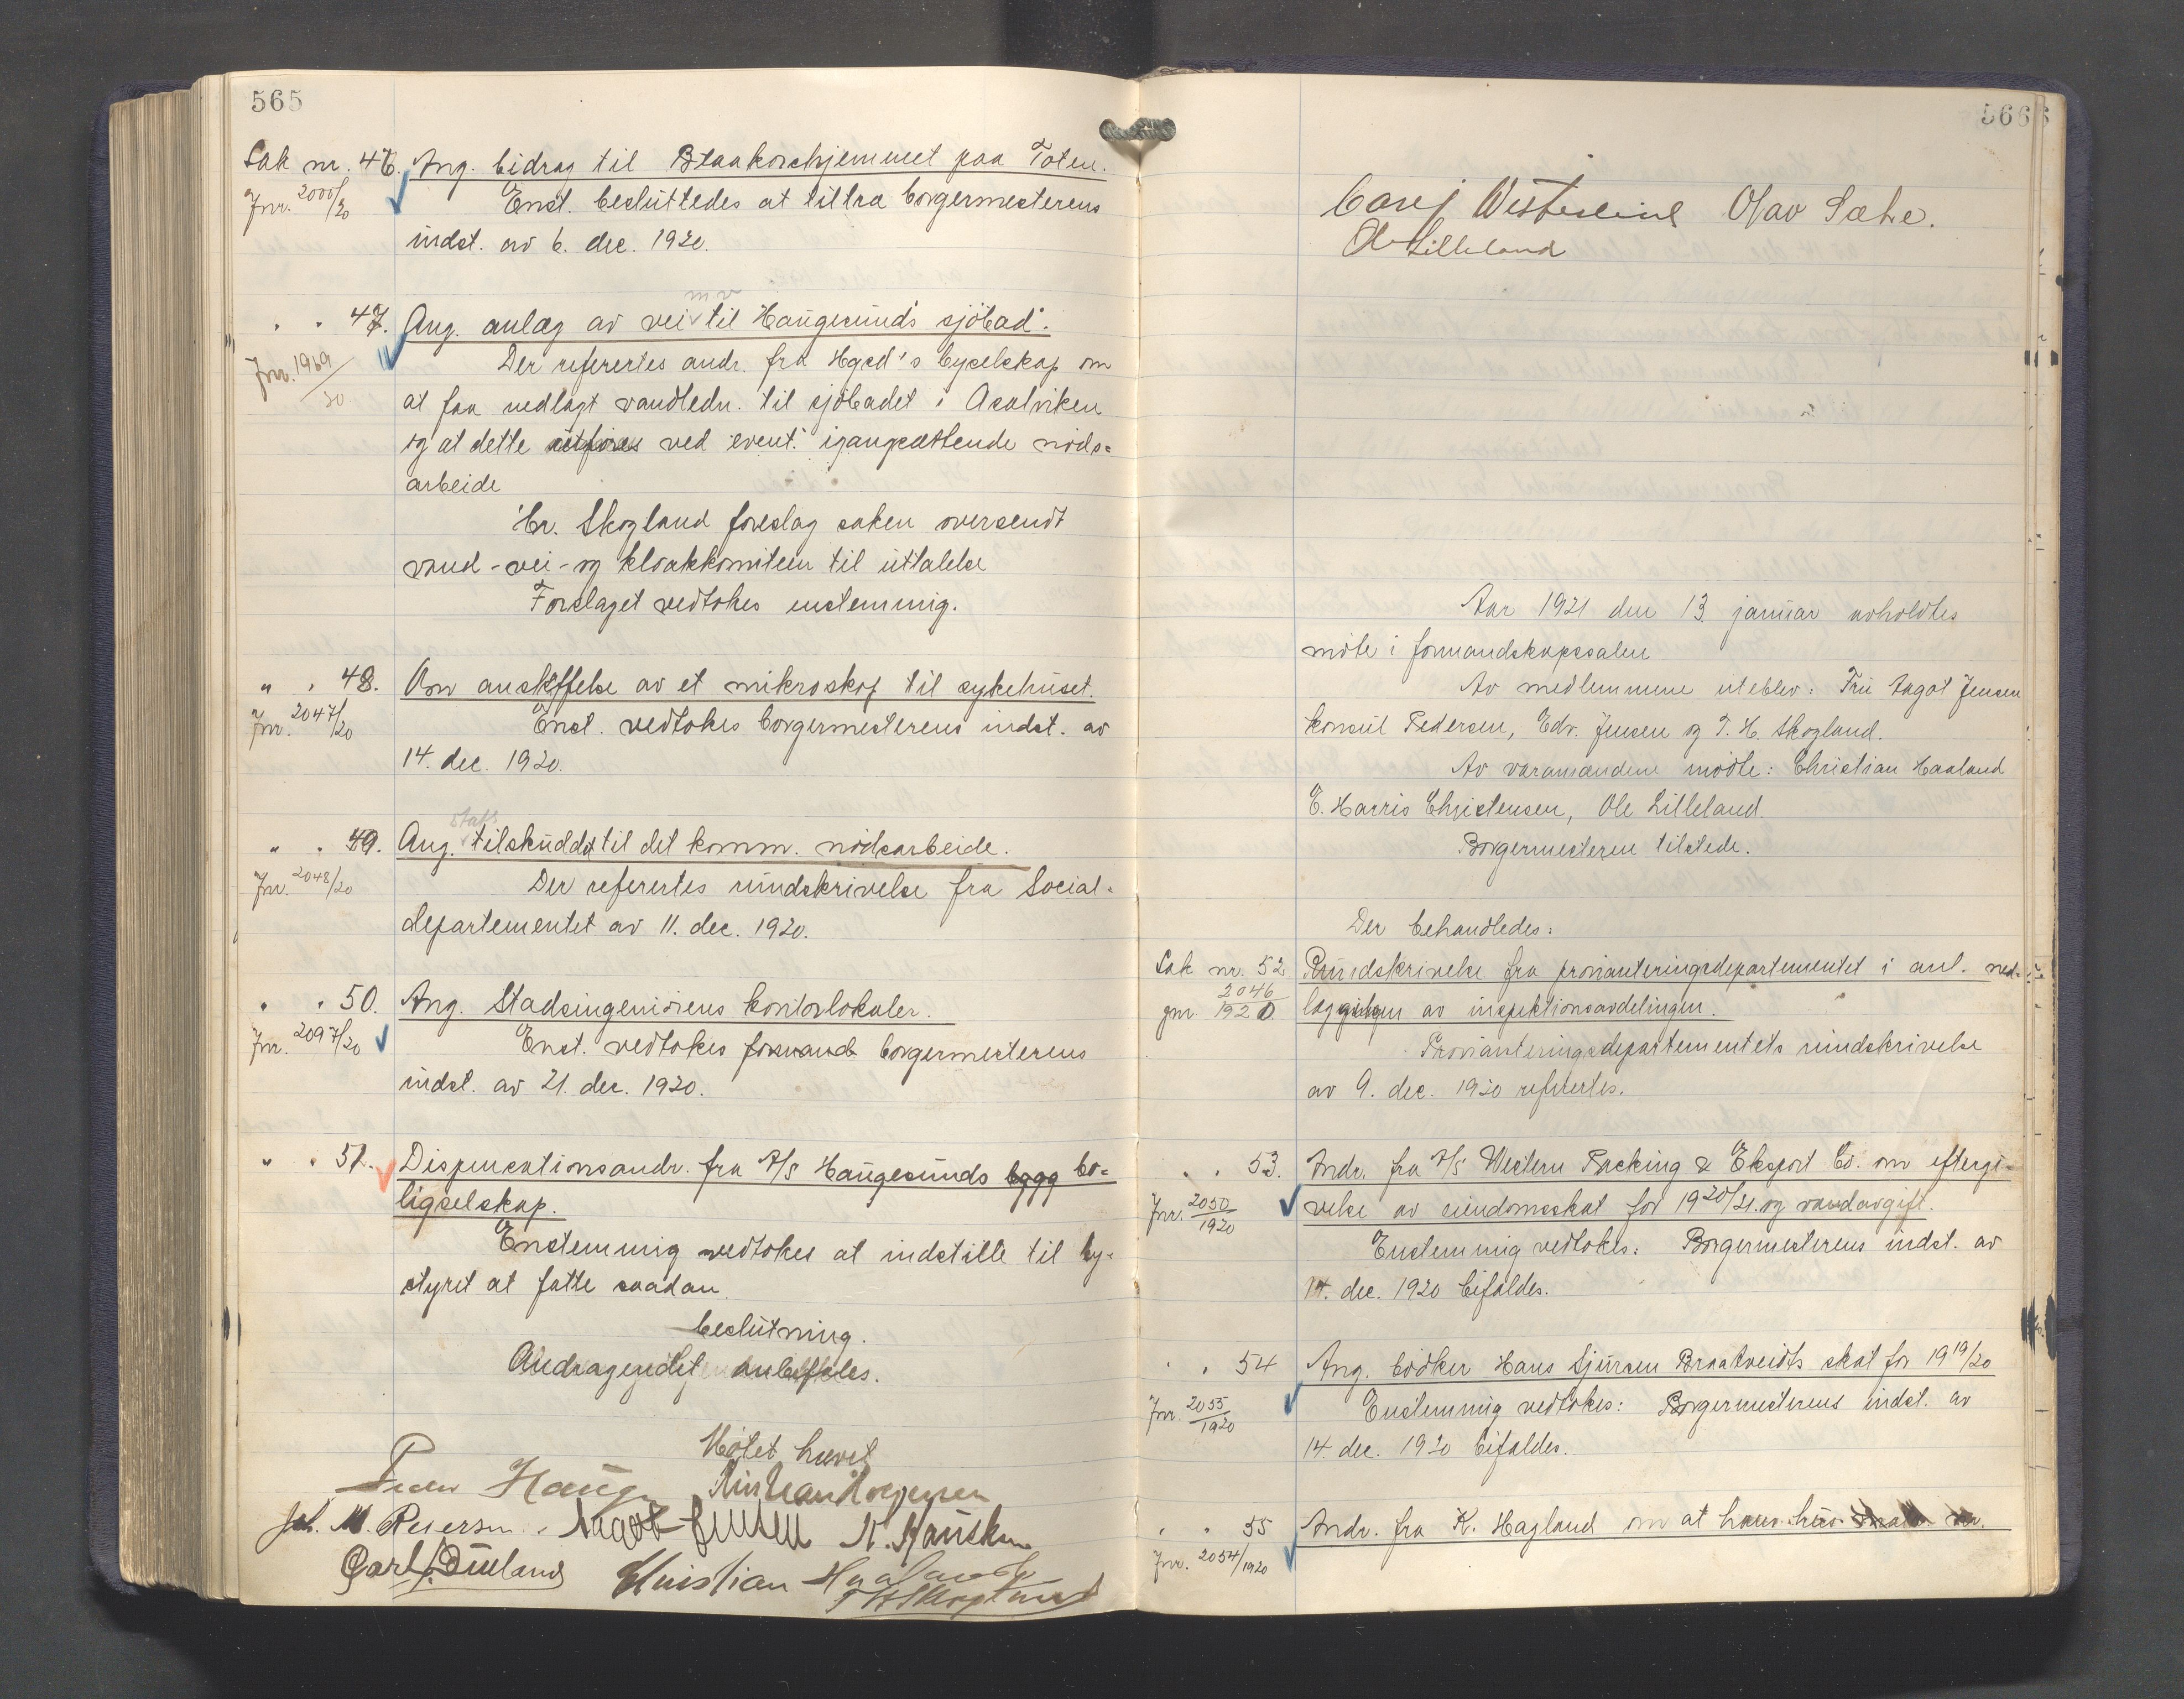 565
Sak nr. 46. Ang. bidrag til Blaakorshjemmet paa Toten.
Jnr. 2000/20 Enst. besluttedes at tiltra borgermesterens
indst. av 6. dec. 1920.
" " 47. Ang. anlæg av vei til Haugesunds sjöbad.
Jnr. 1969/20 Der refertes andr. fra Hgsd's byselskap om
at faa nedlagt vandledn. til sjöbadet i Asalviken
og at dette utföres ved event. igangsættende nöds=
arbeide
Hr. Skogland foreslag saken oversendt
vand-vei-og kloakkomiteen til uttalelse
Forslaget vedtokes enstemmig.
" " 48. Om anskaffelse av et mikroskop til sykehuset.
Jnr. 2047/20 Enst. vedtokes borgermesterens indst. av
14. dec. 1920.
stats
" " 49. Ang. tilskudd til det komm. nödsarbeide.
Jnr. 2048/20 Der refertes rundskrivelse fra Social-
departementet av 11. dec. 1920.
" " 50. Ang. Stadsingeniörens kontorlokaler.
Jnr. 2097/20 Enst. vedtokes borgermesterens
indst. av 21. dec. 1920.
" " 51. Dispensationsandr. fra A/S Haugesunds bygg bo=
ligselskap.
Enstemmig vedtokes at indstille til by-
styret at fatte saadan
beslutning.
Andragendet anbefales.
Mötet hævet
Peder Haugen
Joh. M. Pedersen. Aagot Jensen N. Hansken
Carl J. Christian Haaland
T H Skogland
566
Westerlind Olav Sæhe.
Ole Lilleland
Aar 1921 den 13 januar avholdtes
möte i formandskapssalen
Av medlemmene uteblev: Fru Aagot Jensen
konsul Pedersen, Edv. Jensen og T. H. Skogland.
Av varamændene mödte: Christian Haaland
E. Harris Christensen, Ole Lilleland.
Borgermesteren tilstede.
Der behandledes:
Sak nr. 52. Rundskrivelse fra provianteringsdepartementet i anl. ned-
gnr. 2046/1920 læggelsen av inspektionsavdelingen.
Provianteringsdepartementets rundskrivelse
av 9. dec. 1920 refertes.
" " 53. Andr. fra A/S Western Packing & Eksport Co. om eftergi-
Jnr. 2050/1920 velse av eiendomsskat for 1920/21. og vandavgift.
Enstemmig vedtokes: Borgermesterens indst. av
14. dec. 1920 bifaldes.
" " 54 Ang. bödker Hans Sjursen Braatveidts skat for 1919/20
Jnr. 2055/1920 Enstemmig vedtokes: Borgermesterens indst. av
14. dec. 1920 bifaldes.
" " 55 Andr. fra K. Hagland om at hans hus
Jnr. 2054/1920